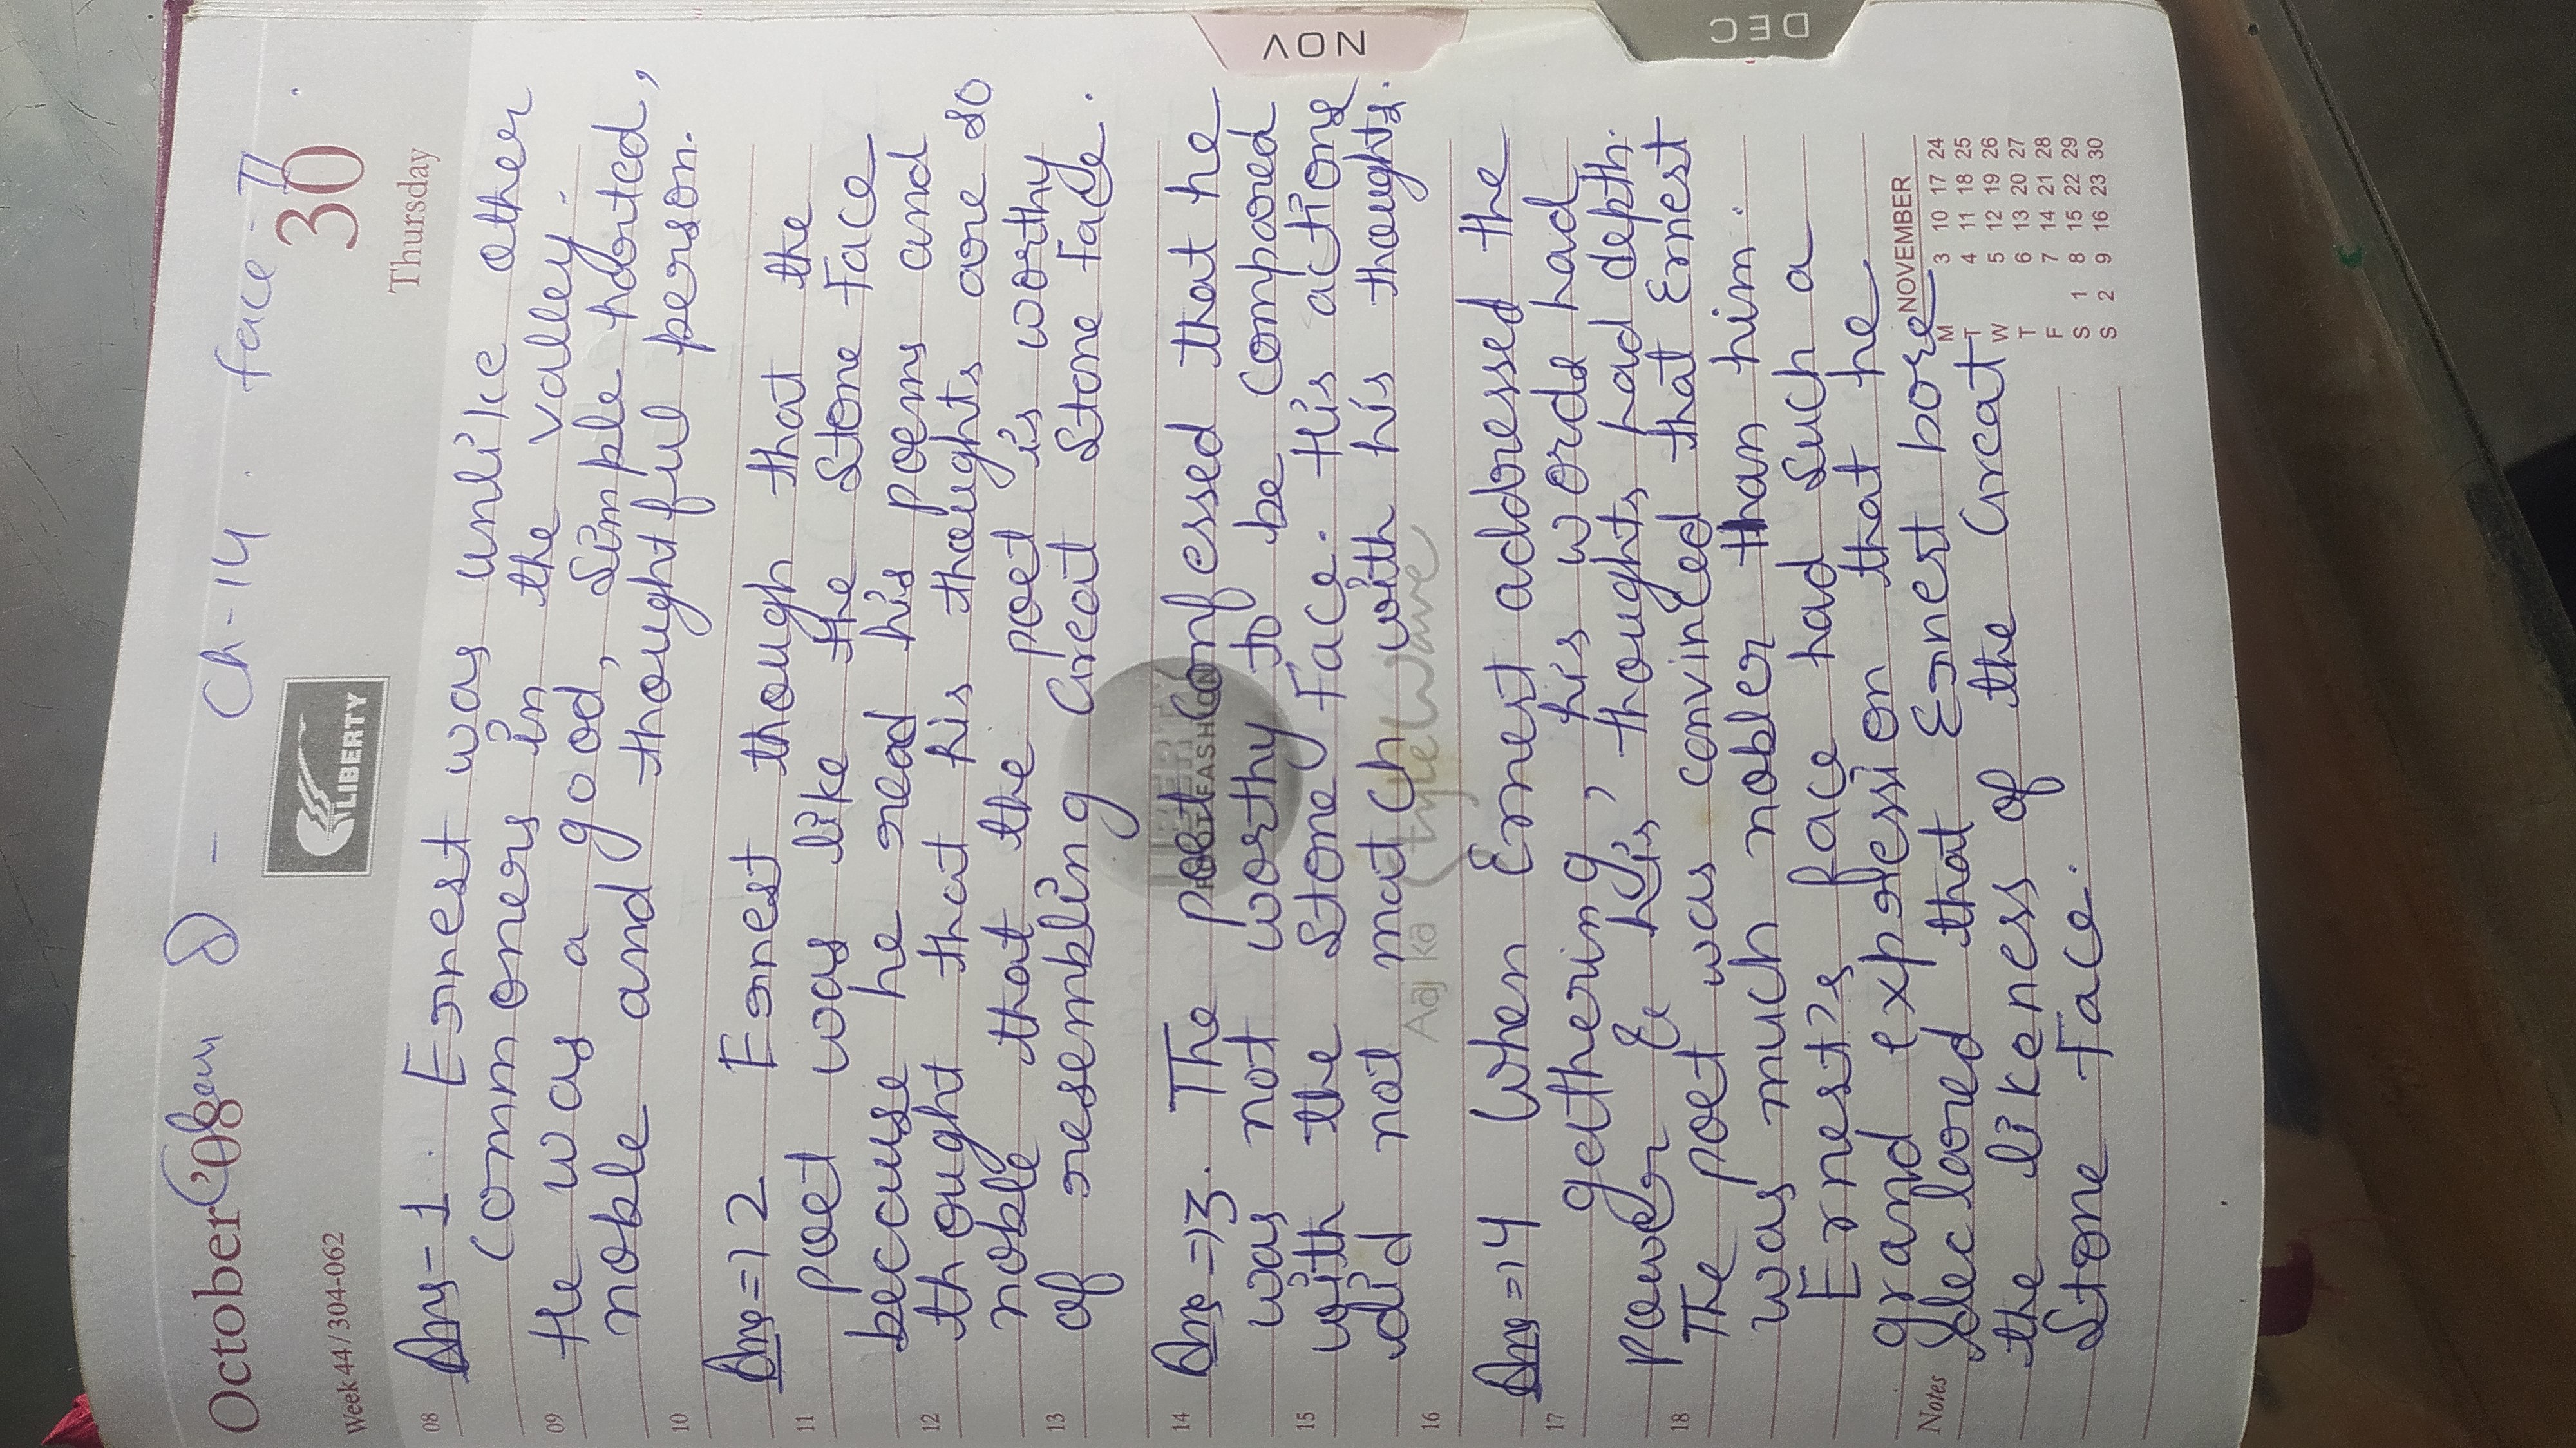 Ch-14. face-II.
October '08
30
Week 44/304-062
Thursday
LIBERTY
08
Ans-1. Ernest was unlike other
commoners in the valley.
09
He was a good, simple harted,
noble and thoughtful person.
10
Ans=12 Ernest though that the
11
poet was like the Stone Face
because he read his poems and
12
thought that his thoughts are so
noble that the poet is worthy
13
of resembling Great Stone Face.
14
Ans=13. The poet confessed that he
was not worthy to be compared
15
with the Stone Face. His actions
did not match with his thoughts.
Aaj ka
16
Ans=14 When Ernest addressed the
17
gethering, his words had
power & his, thoughts had depth.
18
The poet was convinced that Ernest
was much nobler than him.
Ernest's face had such a
grand expression that he
Notes
declared that Ernest bore
the likeness of the Great
Stone Face.
NOVEMBER
M 3 10 17 24
T 4 11 18 25
W 5 12 19 26
T 6 13 20 27
F 7 14 21 28
S 1 8 15 22 29
S 2 9 16 23 30
NOV
DEC